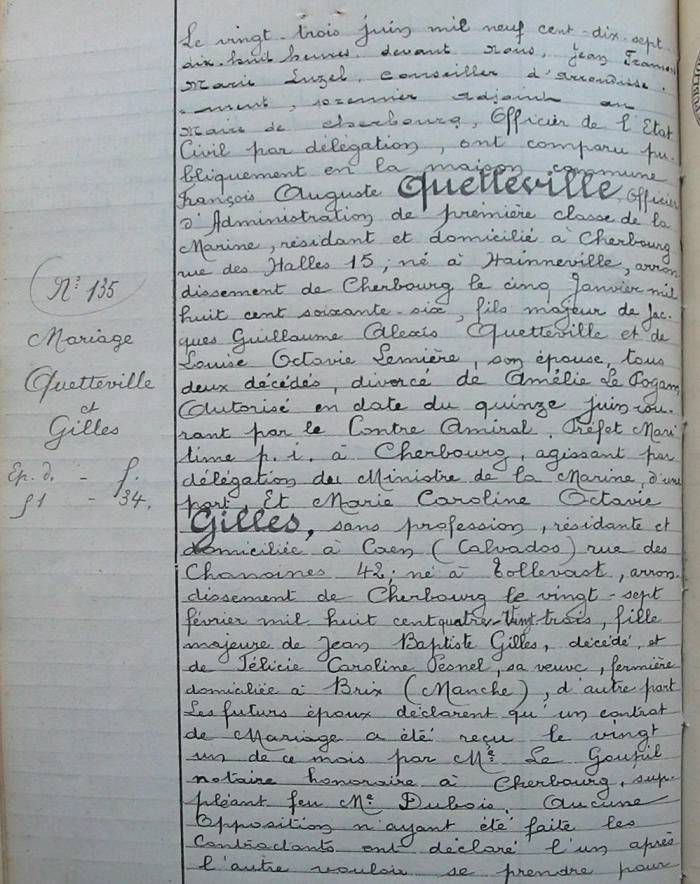 Le vingt-trois juin mil neuf cent-dix-sept
dix-huit heures devant nous, Jean François
Marie Luzel, Conseiller d'arrondisse-
-ment, premier adjoint au
Maire de Cherbourg, Officier de l'Etat
Civil par délégation, ont comparu pu-
bliquement en la maison commune
François Auguste Quetteville, Officier
d'Administration de première classe de la
Marine, résidant et domicilié à Cherbourg
rue des Halles 15; né à Hainneville, arron
dissement de Cherbourg le cinq Janvier mil
huit cent soixante-six, fils majeur de Jac-
ques Guillaume Alexis Quetteville et de
Louise Octavie Lemière, son épouse, tous
deux décédés, divorcé de Amélie Le Pogam
Autorisé en date du quinze juin cou-
rant par le Contre Amiral, Préfet Mari
time p. i. à Cherbourg, agissant par
délégation du Ministre de la Marine, d'une
part. Et Marie Caroline Octavie
Gilles, sans profession, résidante et
domiciliée à Caen (Calvados) rue des
Chanoines 42; né à Tollevast, arron-
dissement de Cherbourg le vingt-sept
février mil huit cent quatre-vingt trois, fille
majeure de Jean Baptiste Gilles, décédé, et
de Félicie Caroline Pesnel, sa veuve, fermière
domiciliée à Brix (Manche), d'autre part
Les futurs époux déclarent qu'un contrat
de Mariage a été reçu le vingt
un de ce mois par Me Le Goupil
notaire honoraire à Cherbourg, sup-
pléant feu Me Dubois. Aucune
Opposition n'ayant été faite les
Contractants ont déclaré l'un après
l'autre vouloir se prendre pour
No 135
Mariage
Quetteville
et
Gilles
Ep. d. - f.
51 - 34.